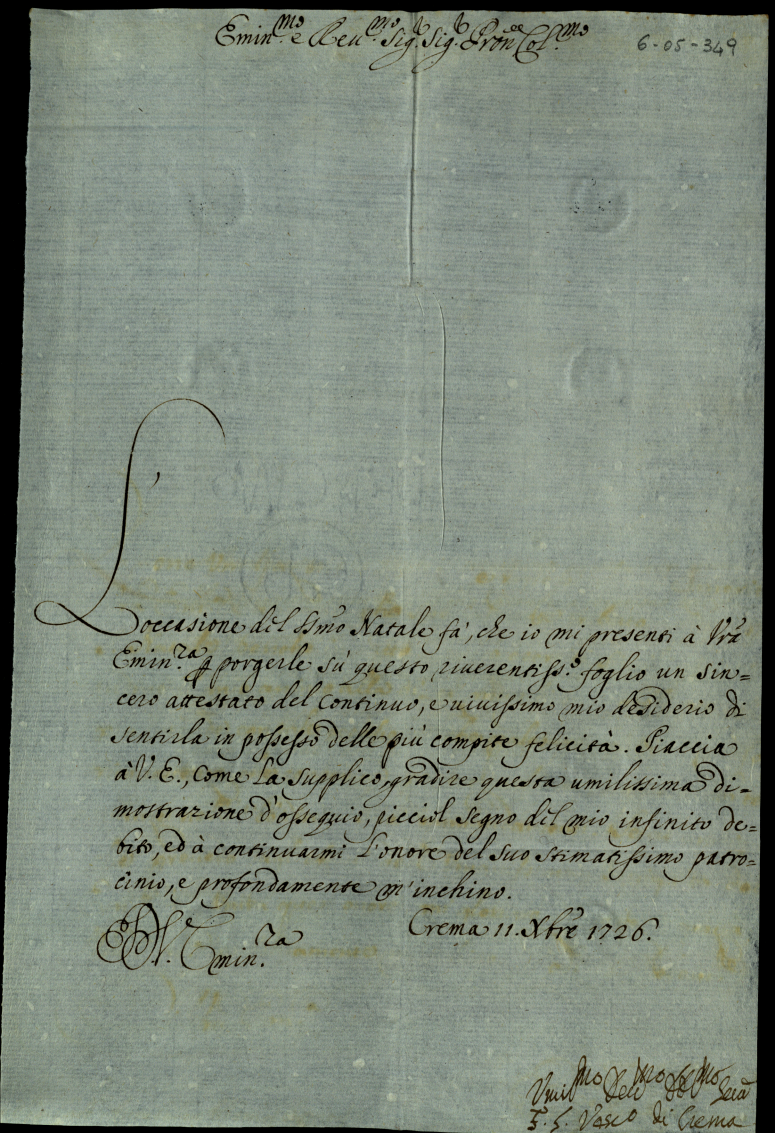 Emin.mo e Reu.mo Sig.r Sig.r Pron. Col.mo
6-05-349
L'occasione del Ssmo Natale fà, che io mi presenti à Vra
Emin.za p porgerle sù questo riverentiss.o foglio un sin=
cero attestato del continuo, e vivissimo mio desiderio di
sentirla in possesso delle più compite felicità. Piaccia
à V. E., come La supplico, gradire questa umilissima di=
mostrazione d'ossequio, picciol segno del mio infinito de=
bito, ed à continuarmi l'onore del suo stimatissimo patro=
cinio, e profondamente m'inchino.
Crema 11. Xbre 1726.
Emin.za
Vmil.mo
Vesco di Crema